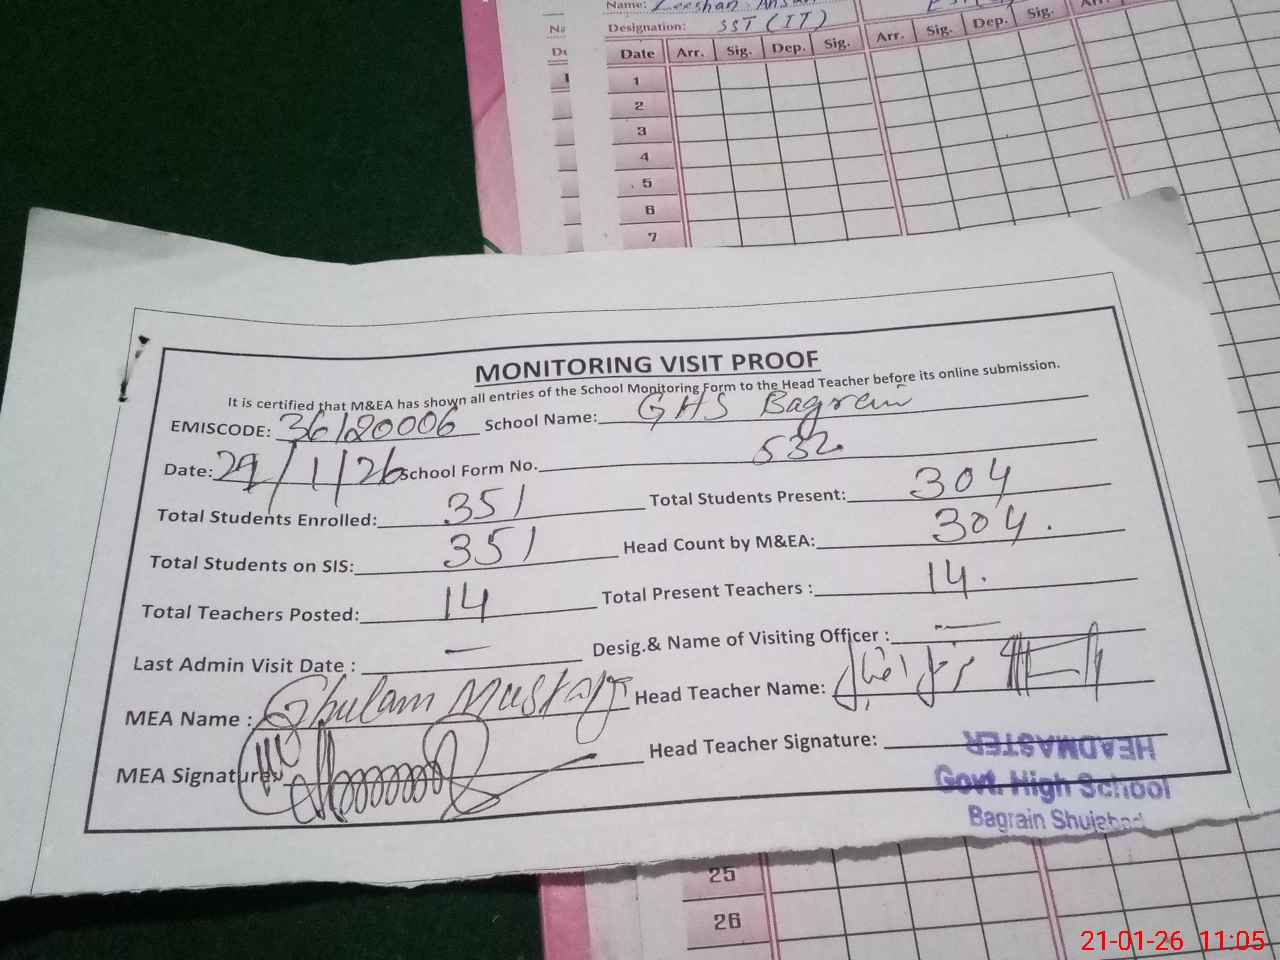 Name: Zeeshan Ansari
Designation: SST (IT)
Date Arr. Sig. Dep. Sig. Arr. Sig. Dep. Sig.
1
2
3
4
5
6
7
MONITORING VISIT PROOF
It is certified that M&EA has shown all entries of the School Monitoring Form to the Head Teacher before its online submission.
EMISCODE: 36120006 School Name: GHS Bagrain
Date: 21/1/26 School Form No. 532.
Total Students Enrolled: 351 Total Students Present: 304
Total Students on SIS: 351 Head Count by M&EA: 304.
Total Teachers Posted: 14 Total Present Teachers : 14.
Last Admin Visit Date : — Desig.& Name of Visiting Officer : —
MEA Name : Ghulam Mustafa Head Teacher Name:
MEA Signature: Head Teacher Signature:
HEADMASTER
Govt. High School
Bagrain Shujabad
25
26
21-01-26 11:05